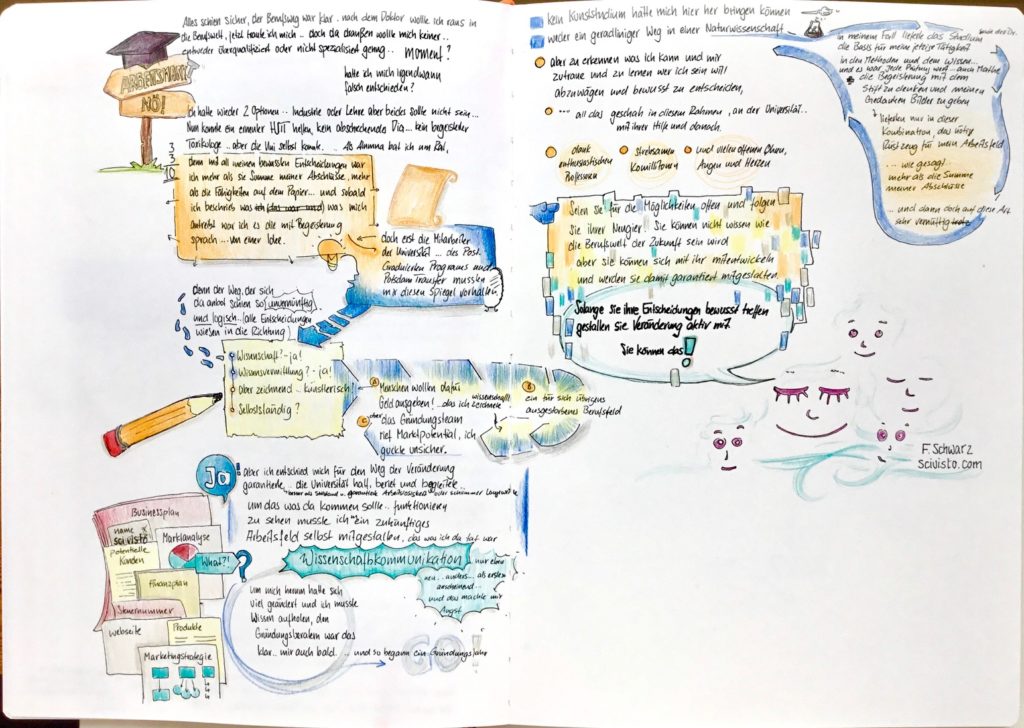 Alles schien sicher, der Berufsweg war klar. nach dem Doktor wollte ich raus in
die Berufswelt, jetzt traute ich mich .. doch da draußen wollte mich keiner...
entweder überqualifiziert oder nicht spezialisiert genug... moment?
hatte ich mich irgendwann
falsch entschieden?
ARBEITSMARKT
NÖ!
Ich hatte wieder 2 Optionen.. Industrie oder Lehre aber beides sollte nicht sein...
Nun konnte ein erneuter HIT helfen, kein abschreckendes Dia... kein begeisterter
Toxikologe.. aber die Uni selbst konnte. .. Als Alumna bat ich um Rat,
denn mit all meinen bewussten Entscheidungen war
ich mehr als die Summe meiner Abschlüsse, mehr
als die Fähigkeiten auf dem Papier... und sobald
ich beschrieb was ich was mich
antreibt war ich es die mit Begeisterung
sprach ... von einer Idee.
doch erst die Mitarbeiter
der Universität ... des Post
Graduierten Programs und
Potsdam Transfer mussten
mir diesen Spiegel vorhalten
denn der Weg, der sich
da anbot schien so unvernünftig
und logisch.. (alle Entscheidungen
wiesen in die Richtung)
Wissenschaft? - ja!
Wissensvermittlung? - ja!
Aber zeichnend... künstlerisch?
Selbstständig?
A Menschen wollten dafür
Geld ausgeben! ..das ich wissenschaftl.
zeichnete
B ein für sich übrigens
ausgestorbenes Berufsfeld
C aber das Gründungsteam
rief Marktpotential, ich
guckte unsicher.
Ja!
aber ich entschied mich für den Weg der Veränderung
garantierte, .. die Universität half, beriet und begleitete..
um das was da kommen sollte.. funktionieren
zu sehen musste ich ein zukünftiges
Arbeitsfeld selbst mitgestalten, das was ich da tat war
Wissenschaftskommunikation .. nur eben
neu... anders... als erstes
anscheinend...
und das machte mir
Angst
Businessplan
name
scivisto
Potentielle
Kunden
Marktanalyse
What?!
?
Finanzplan
Steuernummer
webseite
Produkte
Marketingstrategie
um mich herum hatte sich
viel geändert und ich musste
Wissen aufholen, den
Gründungsberatern war das
klar.. mir auch bald. .. und so begann ein Gründungsjahr
GO!
kein Kunststudium hätte mich hier her bringen können
weder ein geradliniger Weg in einer Naturwissenschaft
aber zu erkennen was Ich kann und mir
zutraue und zu lernen wer ich sein will
abzuwägen und bewusst zu entscheiden,
... all das geschah in diesem Rahmen, an der Universität..
mit ihrer Hilfe und danach.
dank
enthusiastischen
Professoren
strebsamen
Komilitonen
und vielen offenen Ohren,
Augen und Herzen
in meinem Fall lieferte das Studium
die Basis für meine jetzige Tätigkeit
in den Methoden und dem Wissen...
und es war jede Prüfung wert... auch Mathe
die Begeisterung mit dem
Stift zu denken und meinen
Gedanken Bilder zu geben
lieferten nur in dieser
Kombination, das nötige
Rüstzeug für mein Arbeitsfeld
... wie gesagt
mehr als die Summe
meiner Abschlüsse
... und dann doch auf diese Art
sehr vernünftig
Seien Sie für die Möglichkeiten offen und folgen
Sie ihrer Neugier!! Sie können nicht wissen wie
die Berufswelt der Zukunft sein wird
aber Sie können sich mit ihr mitentwickeln
und werden Sie damit garantiert mitgestalten.
Solange Sie ihre Entscheidungen bewusst treffen
gestalten sie Veränderung aktiv mit.
Sie können das!
F. Schwarz
scivisto.com